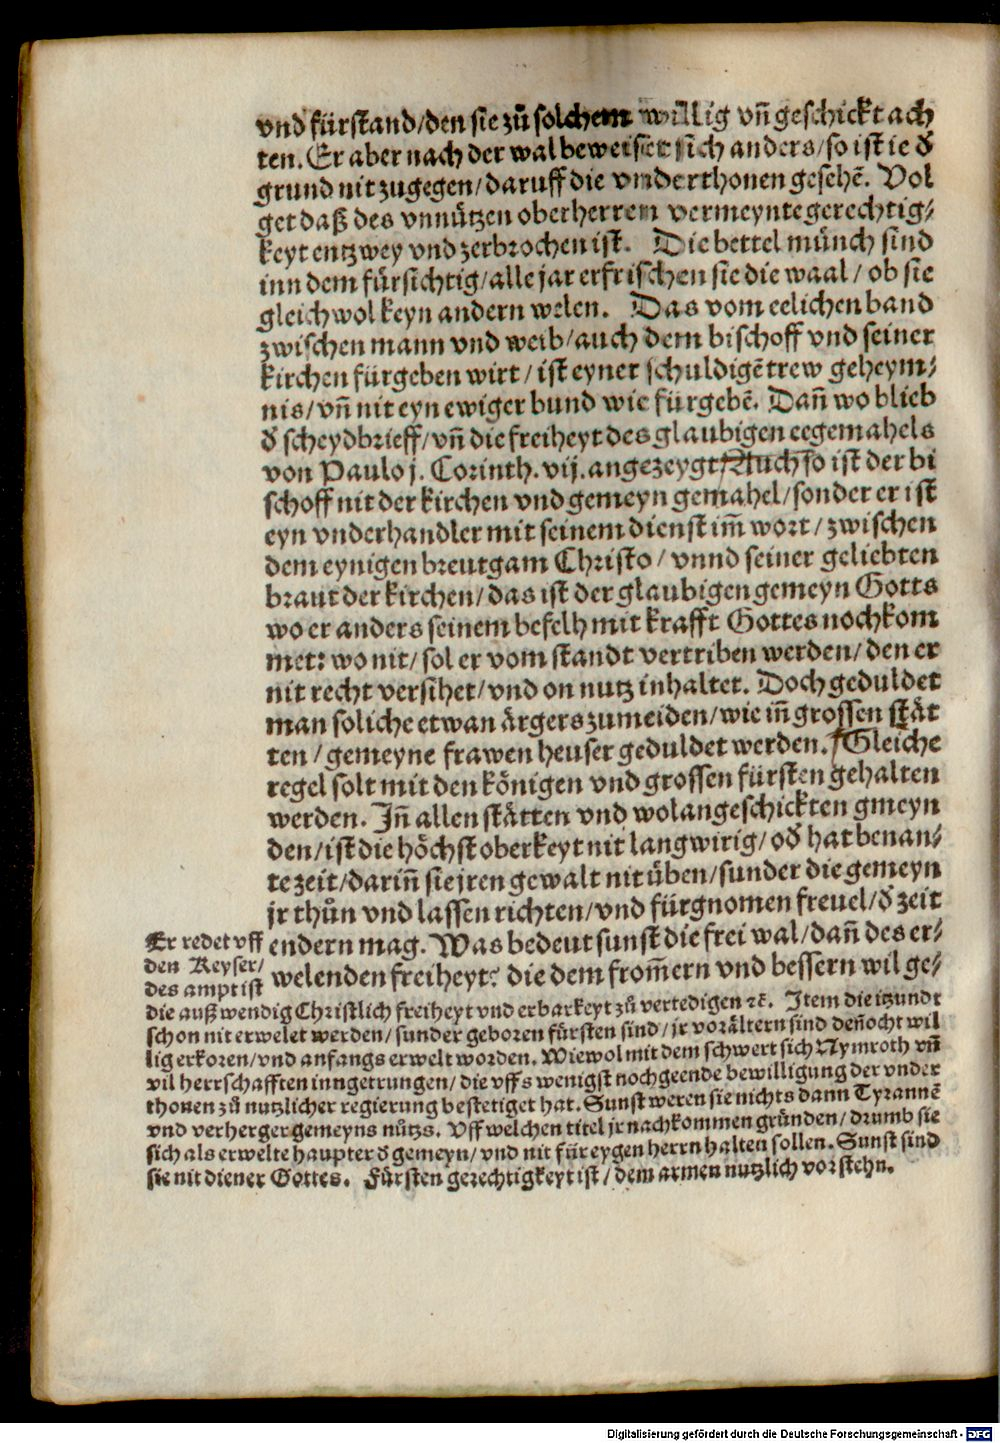 vnd fürstand/den sie zů solchem willig vñ geschickt ach
ten. Er aber nach der wal beweiset sich anders/so ist ie đ
grund nit zugegen/daruff die vnderthonen gesehē. Vol
get daß des vnnützen oberherren vermeynte gerechtig⸗
keyt entzwey vnd zerbrochen ist. Die bettel münch sind
inn dem fürsichtig/alle jar erfrischen sie die waal/ ob sie
gleich wol keyn andern welen. Das vom eelichen band
zwischen mann vnd weib/auch dem bischoff vnd seiner
kirchen fürgeben wirt/ ist eyner schuldigē trew geheym⸗
nis/vñ nit eyn ewiger bund wie fürgebē. Dañ wo blieb
đ scheydbrieff/vñ die freiheyt des glaubigen eegemahels
von Paulo j. Corinth. vij. angezeygt/Auch so ist der bi
schoff nit der kirchen vnd gemeyn gemahel/sonder er ist
eyn vnderhandler mit seinem dienst im̃ wort/ zwischen
dem eynigen breutgam Christo/ vnnd seiner geliebten
braut der kirchen/das ist der glaubigen gemeyn Gotts
wo er anders seinem befelh mit krafft Gottes nochkom
met: wo nit/ sol er vom standt vertriben werden/den er
nit recht versihet/vnd on nutz inhaltet. Doch geduldet
man soliche etwan ärgers zumeiden/wie iñ grossen stät
ten/gemeyne frawen heuser geduldet werden. Gleiche
regel solt mit den königen vnd grossen fürsten gehalten
werden. Jñ allen stätten vnd wolangeschickten gmeyn
den/ist die höchst oberkeyt nit langwirig/ ođ hat benan⸗
te zeit/dariñ sie jren gewalt nit üben/sunder die gemeyn
jr thůn vnd lassen richten/vnd fürgnomen freuel/đ zeit
endern mag. Was bedeut sunst die frei wal/dañ des er⸗
welenden freiheyt: die dem from̃ern vnd bessern wil ge⸗
Er redet vff
den Keyser/
des ampt ist
die außwendig Christlich freiheyt vnd erbarkeyt zů vertedigen ꝛc̃. Jtem die itzundt
schon nit erwelet werden/sunder geboren fürsten sind/jr vorältern sind deñocht wil
lig erkoren/vnd anfangs erwelt worden. Wiewol mit dem schwert sich Nymroth vñ
vil herrschafften inngetrungen/die vffs wenigst nochgeende bewilligung der vnder
thonen zů nutzlicher regierung bestetiget hat. Sunst weren sie nichts dann Tyrannē
vnd verherger gemeyns nůtzs. Vff welchen titel jr nachkommen gründen/drumb sie
sich als erwelte haupter đ gemeyn/vnd nit für eygen herrn halten sollen. Sunst sind
sie nit diener Gottes. Fürsten gerechtigkeyt ist/dem armen nutzlich vorstehn.
Digitalisierung gefördert durch die Deutsche Forschungsgemeinschaft - DFG